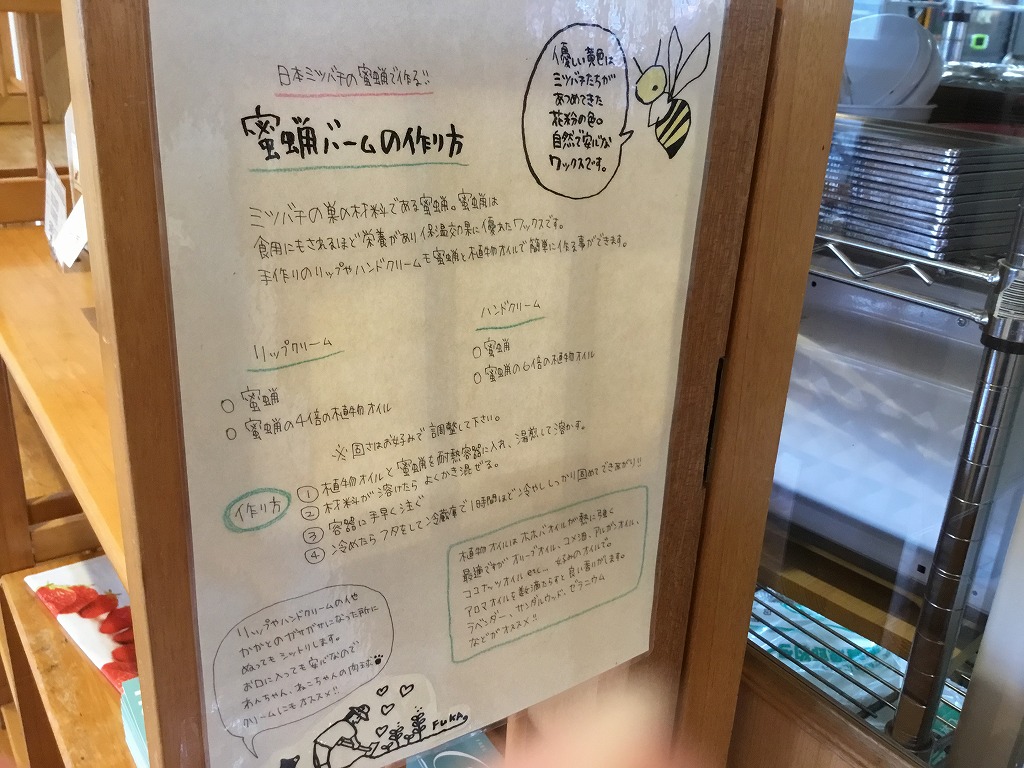 日本ミツバチの蜜蝋で作る!!
蜜蝋バームの作り方
優しい黄色は
ミツバチたちが
あつめてきた
花粉の色。
自然で安心な
ワックスです。
ミツバチの巣の材料である蜜蝋。蜜蝋は
食用にもされるほど栄養があり保湿効果に優れたワックスです。
手作りのリップやハンドクリームも蜜蝋と植物オイルで簡単に作る事ができます。
リップクリーム
○ 蜜蝋
○ 蜜蝋の4倍の植物オイル
ハンドクリーム
○ 蜜蝋
○ 蜜蝋の6倍の植物オイル
※固さはお好みで調整して下さい。
作り方
① 植物オイルと蜜蝋を耐熱容器に入れ、湯煎して溶かす。
② 材料が溶けたらよくかき混ぜる。
③ 容器に手早く注ぐ
④ 冷めたらフタをして冷蔵庫で1時間ほど冷やししっかり固めてできあがり!!
植物オイルはホホバオイルが熱に強く
最適ですがオリーブオイル、コメ油、アルガンオイル、
ココナッツオイルetc... お好みのオイルで。
アロマオイルを数滴たらすと良い香りがします。
ラベンダー、サンダルウッド、ゼラニウム
などがオススメ!!
リップやハンドクリームの他
かかとのガサガサになった所に
ぬってもしっとりします。
お口に入っても安心なので
わんちゃん、ねこちゃんの肉球
クリームにもオススメ!!
FUKA。